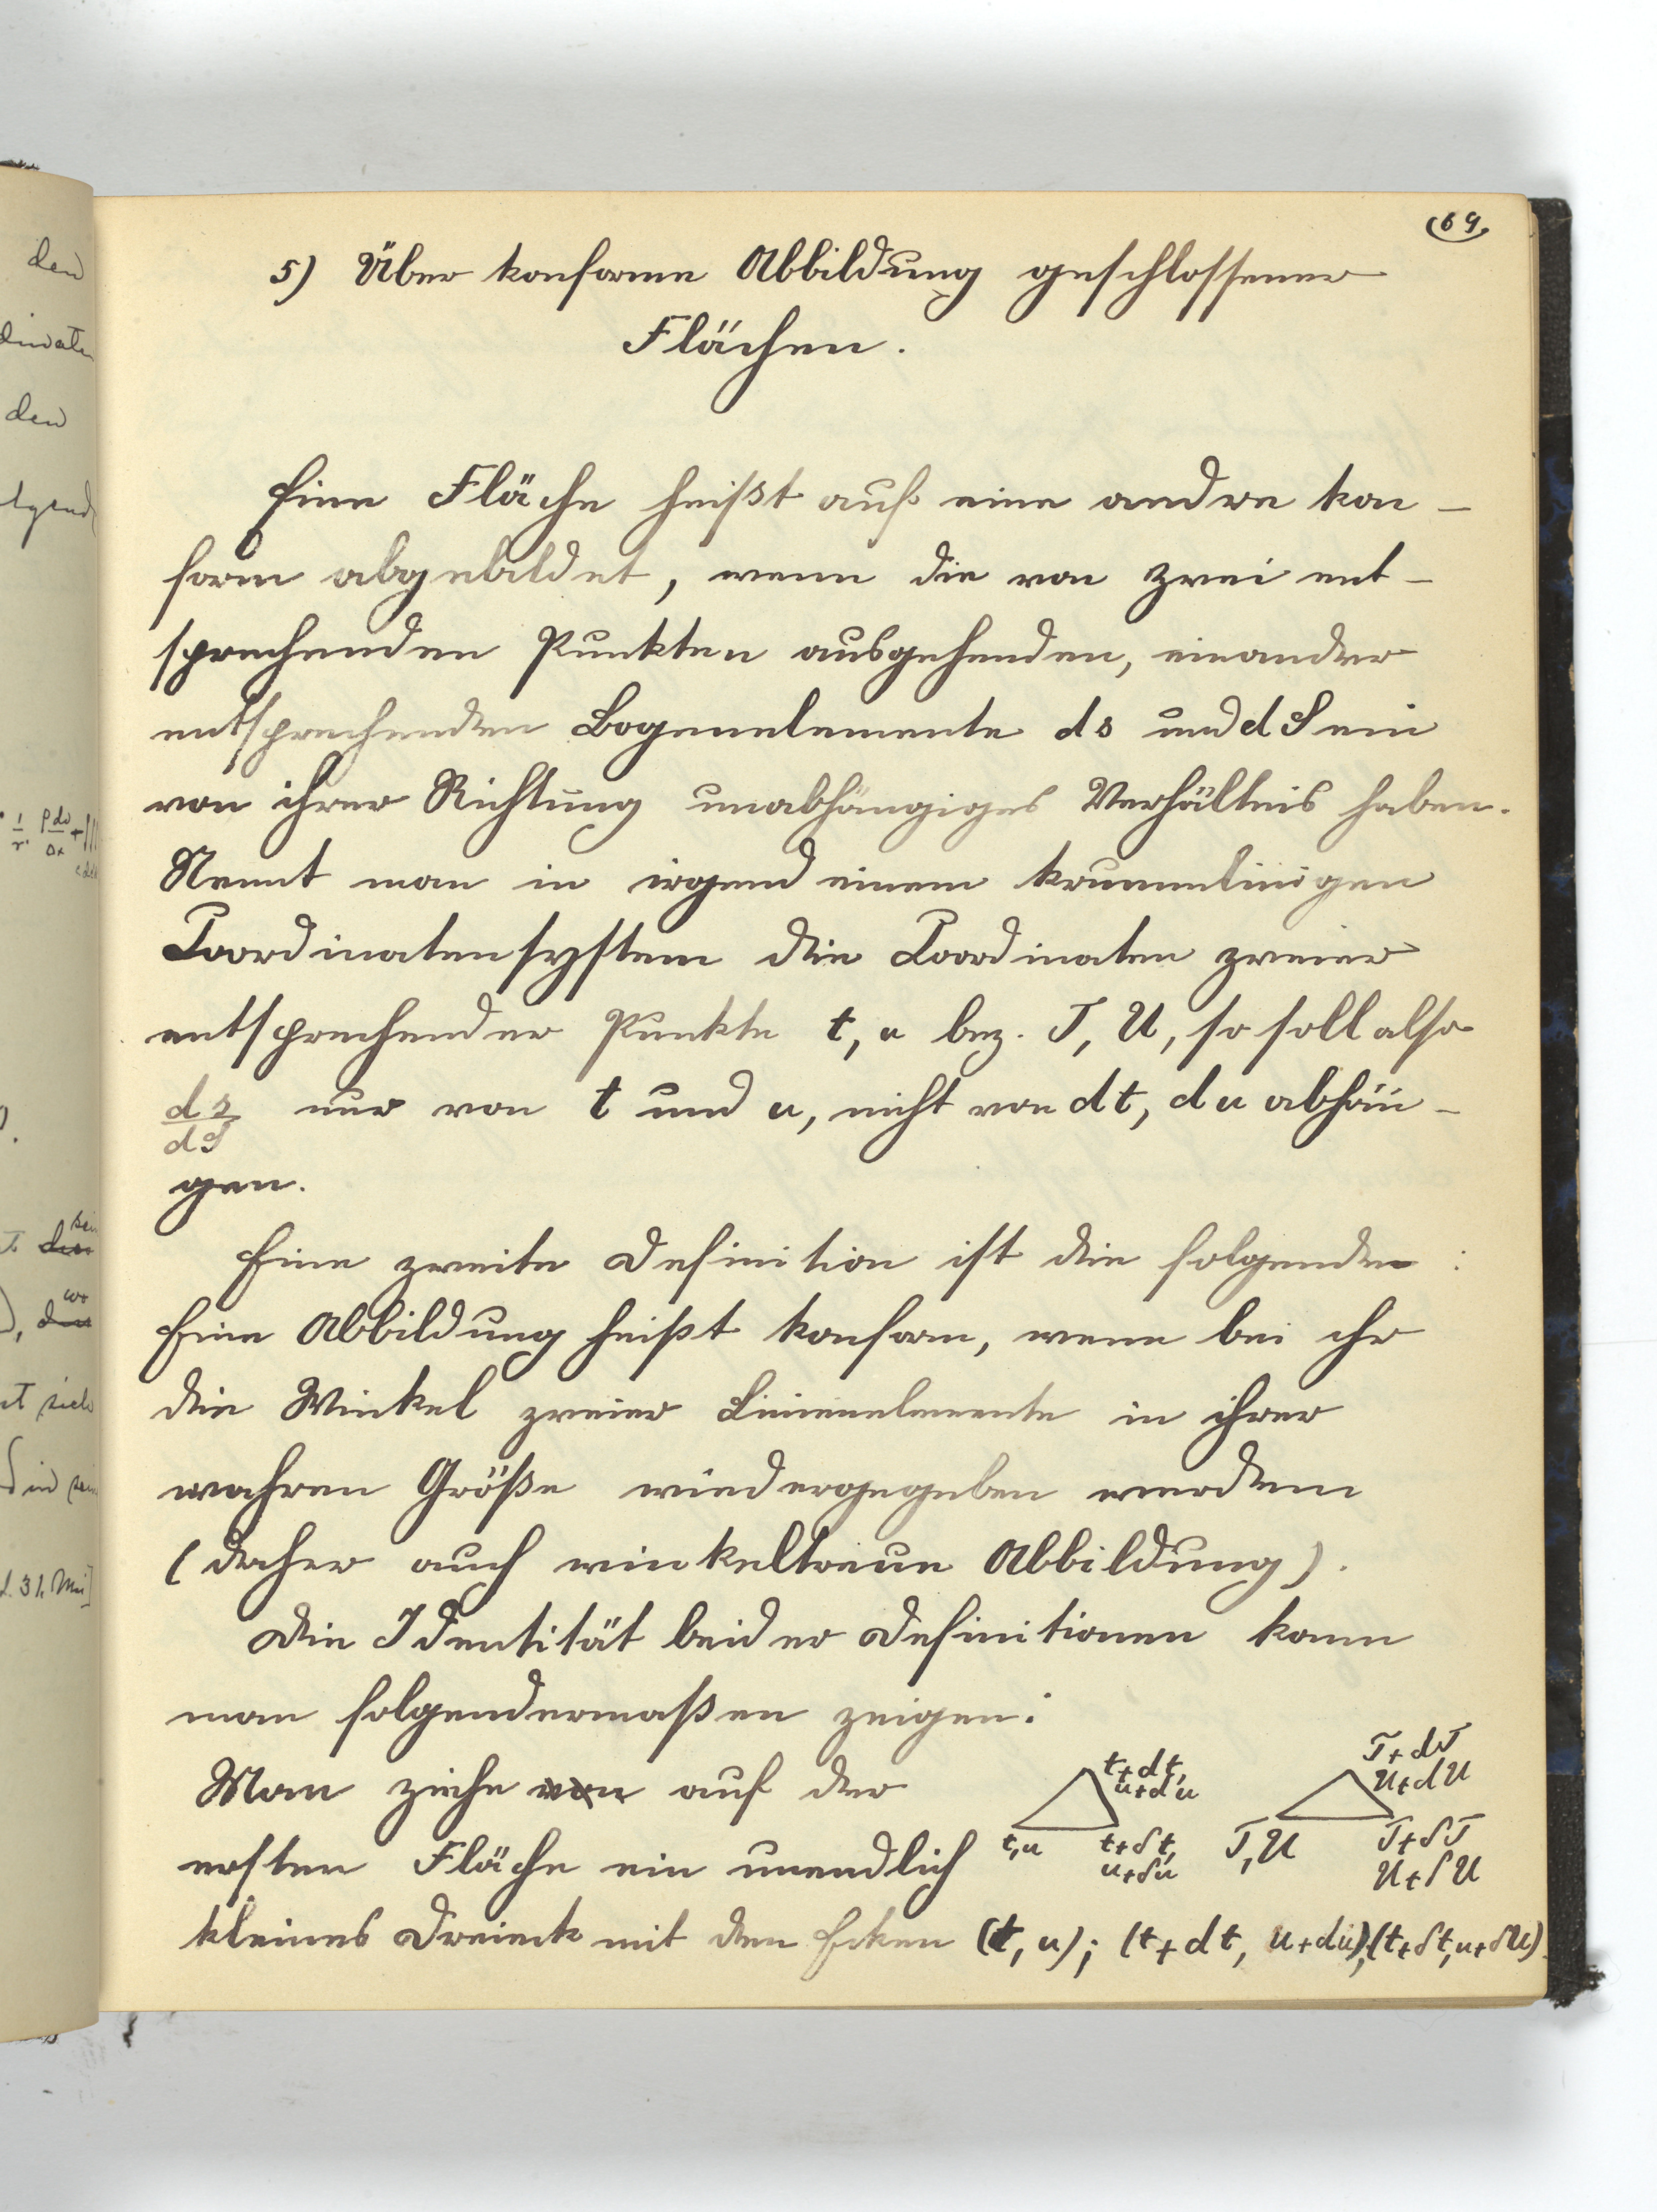 69
5) Über konforme Abbildung geschlossener
Flächen.
Eine Fläche heißt auf eine andre kon-
form abgebildet, wenn die von zwei ent-
sprechenden Punkten ausgehenden, einander
entsprechenden Bogenelemente ds und dS ein
von ihrer Richtung unabhängiges Verhältnis haben.
Nennt man in irgend einem krummlinigen
Coordinatensystem die Coordinaten zweier
entsprechender Punkte t, u bez. T, U, so soll also
ds/dS nur von t und u, nicht von dt, du abhän-
gen.
Eine zweite Definition ist die folgende:
Eine Abbildung heißt konform, wenn bei ihr
die Winkel zweier Linienelemente in ihrer
wahren Größe wiedergegeben werden
(daher auch winkeltreue Abbildung).
Die Identität beider Definitionen kann
man folgendermaßen zeigen:
Man ziehe von auf der
ersten Fläche ein unendlich
kleines Dreieck mit den Ecken (t, u); (t+dt, u+du); (t+δt, u+δu)
t+dt,
u+du
t, u
t+δt,
u+δu
T+dT
U+dU
T, U
T+δT
U+δU
den
den
d. 31. Mai]